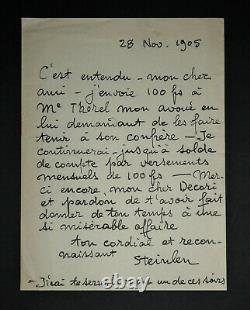 28 Nov. 1905
C'est entendu - mon cher
ami - j'envoie 100 fs à
Me Thérel mon avoué en
lui demandant de les faire
tenir à son confrère - Je
continuerai - jusqu'à solde
de compte par versements
mensuels de 100 fs - Mer-
ci encore, mon cher Decori
et pardon de t'avoir fait
donner de ton temps à une
si misérable affaire
ton cordial et recon-
naissant
Steinlen
- J'irai te serrer un de ces soirs